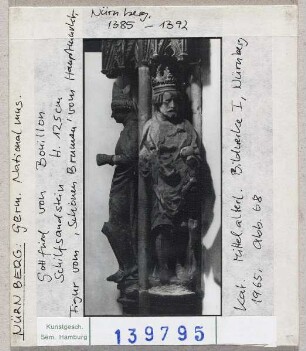 Nürnberg.
1385 – 1392
NÜRNBERG: Germ. National mus.
Gottfried von Bouillon
Schilfsandstein H. 125cm
Figur vom "Schönen Brunnen" vom Hauptmarkt
Kat. Mittelalterl. Bildwerke I, Nürnberg
1965, Abb 68
Kunstgesch.
Sem. Hamburg
139795